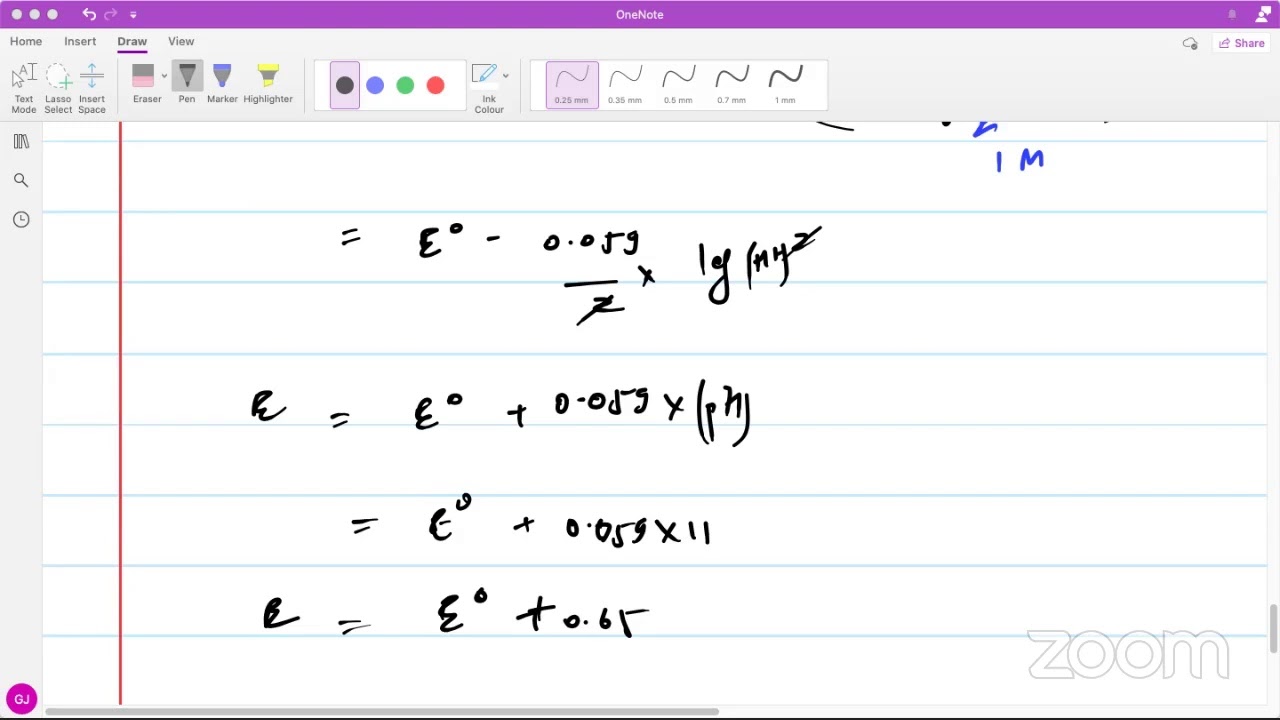 OneNote
Home Insert Draw View
Share
Text Mode
Lasso Select
Insert Space
Eraser
Pen
Marker
Highlighter
Ink Colour
0.25 mm 0.35 mm 0.5 mm 0.7 mm 1 mm
1 M
= E° - 0.059/2 × log (H+)²
E = E° + 0.059 × (pH)
= E° + 0.059 × 11
E = E° + 0.65
zoom
GJ